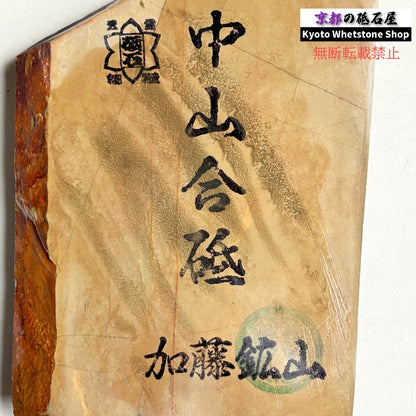 京都の砥石屋
Kyoto Whetstone Shop
無断転載禁止
砥石
中山合砥
加藤鉱山